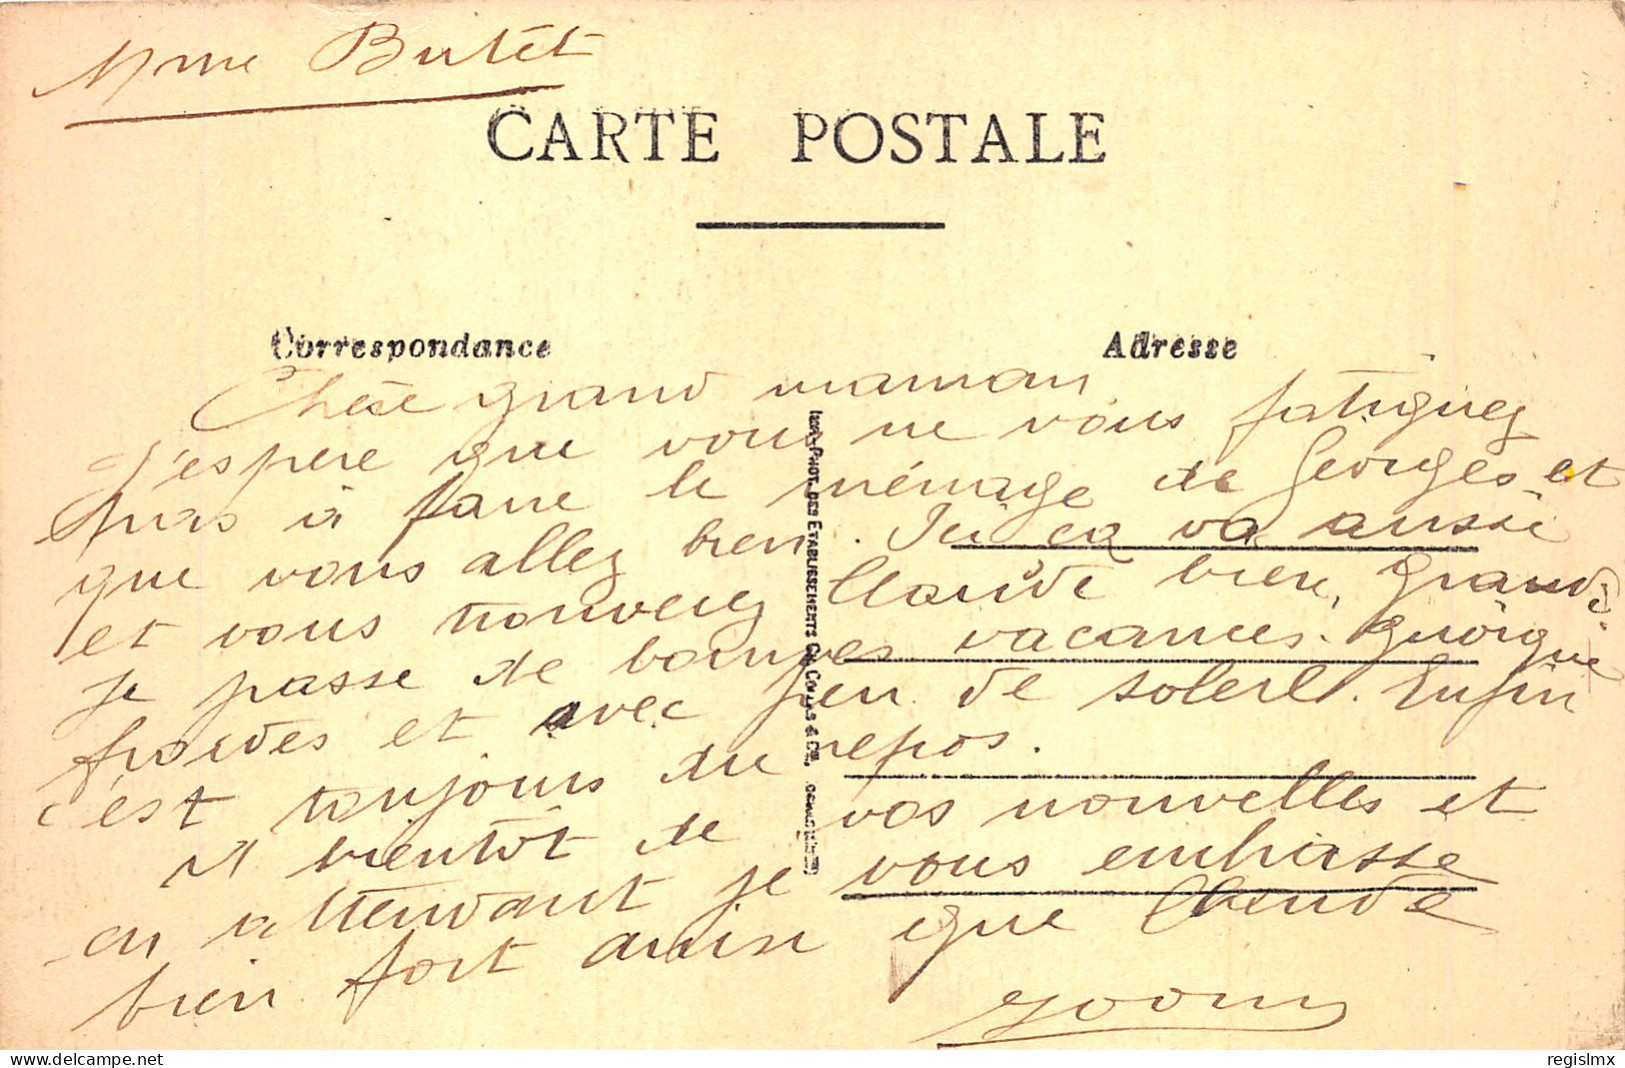 Mme Butet
CARTE POSTALE
Correspondance
Adresse
Chère grand maman
J'espère que vous ne vous fatiguez
pas à faire le ménage de Georges et
que vous allez bien. Ici ça va aussi
et vous trouverez Claude bien, grandi.
Je passe de bonnes vacances. quoique
froides et avec peu de soleil. Enfin
c'est toujours du repos.
A bientôt de vos nouvelles et
en attendant je vous embrasse
bien fort ainsi que Claude
IMP.-PHOT. DES ETABLISSEMENTS CH. COLLAS & CIE,
regislmx